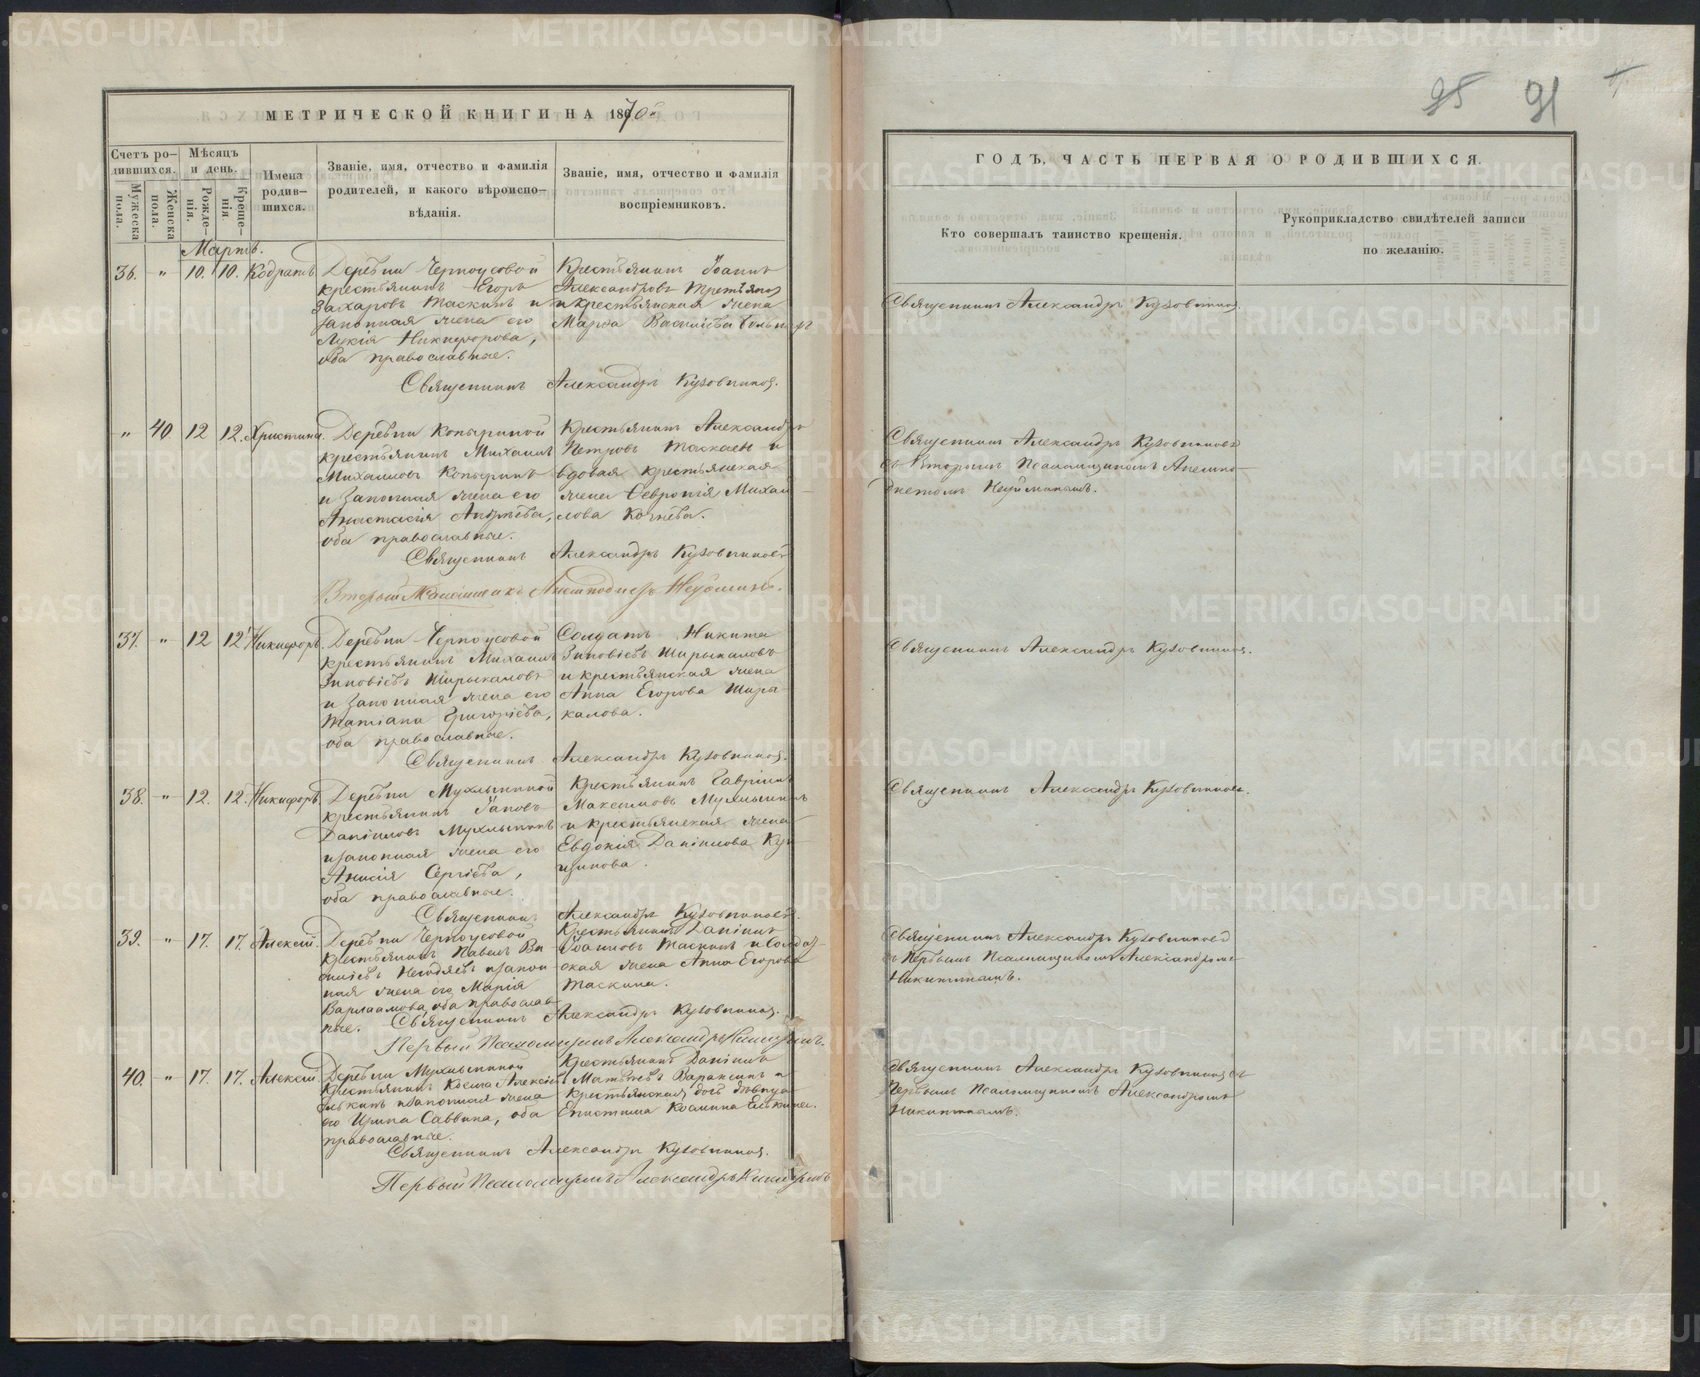 МЕТРИЧЕСКОЙ КНИГИ НА 1870й
Счетъ ро-
дившихся.
Мужеска пола.
Женска пола.
Мѣсяцъ
и день.
Рожде-
нія.
Креще-
нія.
Имена
родив-
шихся.
Званіе, имя, отчество и фамилія
родителей, и какого вѣроиспо-
вѣданія.
Званіе, имя, отчество и фамилія
воспріемниковъ.
Мартъ.
36. " 10. 10. Кодратъ
Деревни Черноусовой
крестьянинъ Егоръ
Захаровъ Таскинъ и
законная жена его
Лукія Никифорова,
оба православные.
Крестьянинъ Іоаннъ
Александровъ Третьяков
и крестьянская жена
Марѳа Василіева
Священникъ Александръ Кузовниковъ.
" 40 12 12. Христина.
Деревни Копыриной
крестьянинъ Михаилъ
Михаиловъ Копыринъ
и законная жена его
Анастасія Андреева,
оба православные.
Крестьянинъ Александръ
Петровъ Таскаев и
вдовая крестьянская
жена Февронія Михаи
лова Кочнева.
Священникъ Александръ Кузовниковъ
Второй Псаломщикъ Нейминъ.
37. " 12 12 Никифоръ.
Деревни Черноусовой
крестьянинъ Михаилъ
Зиновіевъ Ширыкаловъ
и законная жена его
Татіана Григоріева,
оба православные.
Солдатъ Никита
Зиновіевъ Ширыкаловъ
и крестьянская жена
Анна Егорова Ширы-
калова.
Священникъ Александръ Кузовниковъ.
38. " 12. 12. Никифоръ.
Деревни Мухлыниной
крестьянинъ Іаковъ
Даніиловъ Мухлынинъ
и законная жена его
Анисія Сергіева,
оба православные.
Крестьянинъ Гавріилъ
Максимовъ Мухлынинъ
и крестьянская жена
Евдокія Даніилова
Священникъ Александръ Кузовниковъ.
39. " 17. 17. Алексій.
Деревни Черноусовой
крестьянинъ Павелъ Ва
силіевъ и закон
ная жена его Марія
Варлаамова, оба православ-
ные.
Крестьянинъ Даніилъ
Іоанновъ Таскинъ и Солдат-
ская жена Анна Егорова
Таскина.
Священникъ Александръ Кузовниковъ.
Первый Псаломщикъ Александръ Никитинъ.
40. " 17. 17. Алексій.
Деревни Мухлыниной
крестьянинъ Косма Алексіевъ
Елькинъ и законная жена
его Ирина Саввина, оба
православные.
Крестьянинъ Даніилъ
Матѳеевъ Вараксинъ и
крестьянская дочь дѣвица
Епистима Космина Елькина.
Священникъ Александръ Кузовниковъ.
Первый Псаломщикъ Александръ Никитинъ
95 91
ГОДЪ, ЧАСТЬ ПЕРВАЯ О РОДИВШИХСЯ.
Кто совершалъ таинство крещенія.
Рукоприкладство свидѣтелей записи
по желанію.
Священникъ Александръ Кузовниковъ.
Священникъ Александръ Кузовниковъ
съ Вторымъ Псаломщикомъ Аполло-
Нейминымъ.
Священникъ Александръ Кузовниковъ.
Священникъ Александръ Кузовниковъ.
Священникъ Александръ Кузовниковъ
съ Первымъ Псаломщикомъ Александромъ
Никитинымъ.
Священникъ Александръ Кузовниковъ съ
Первымъ Псаломщикомъ Александромъ
Никитинымъ.
METRIKI.GASO-URAL.RU